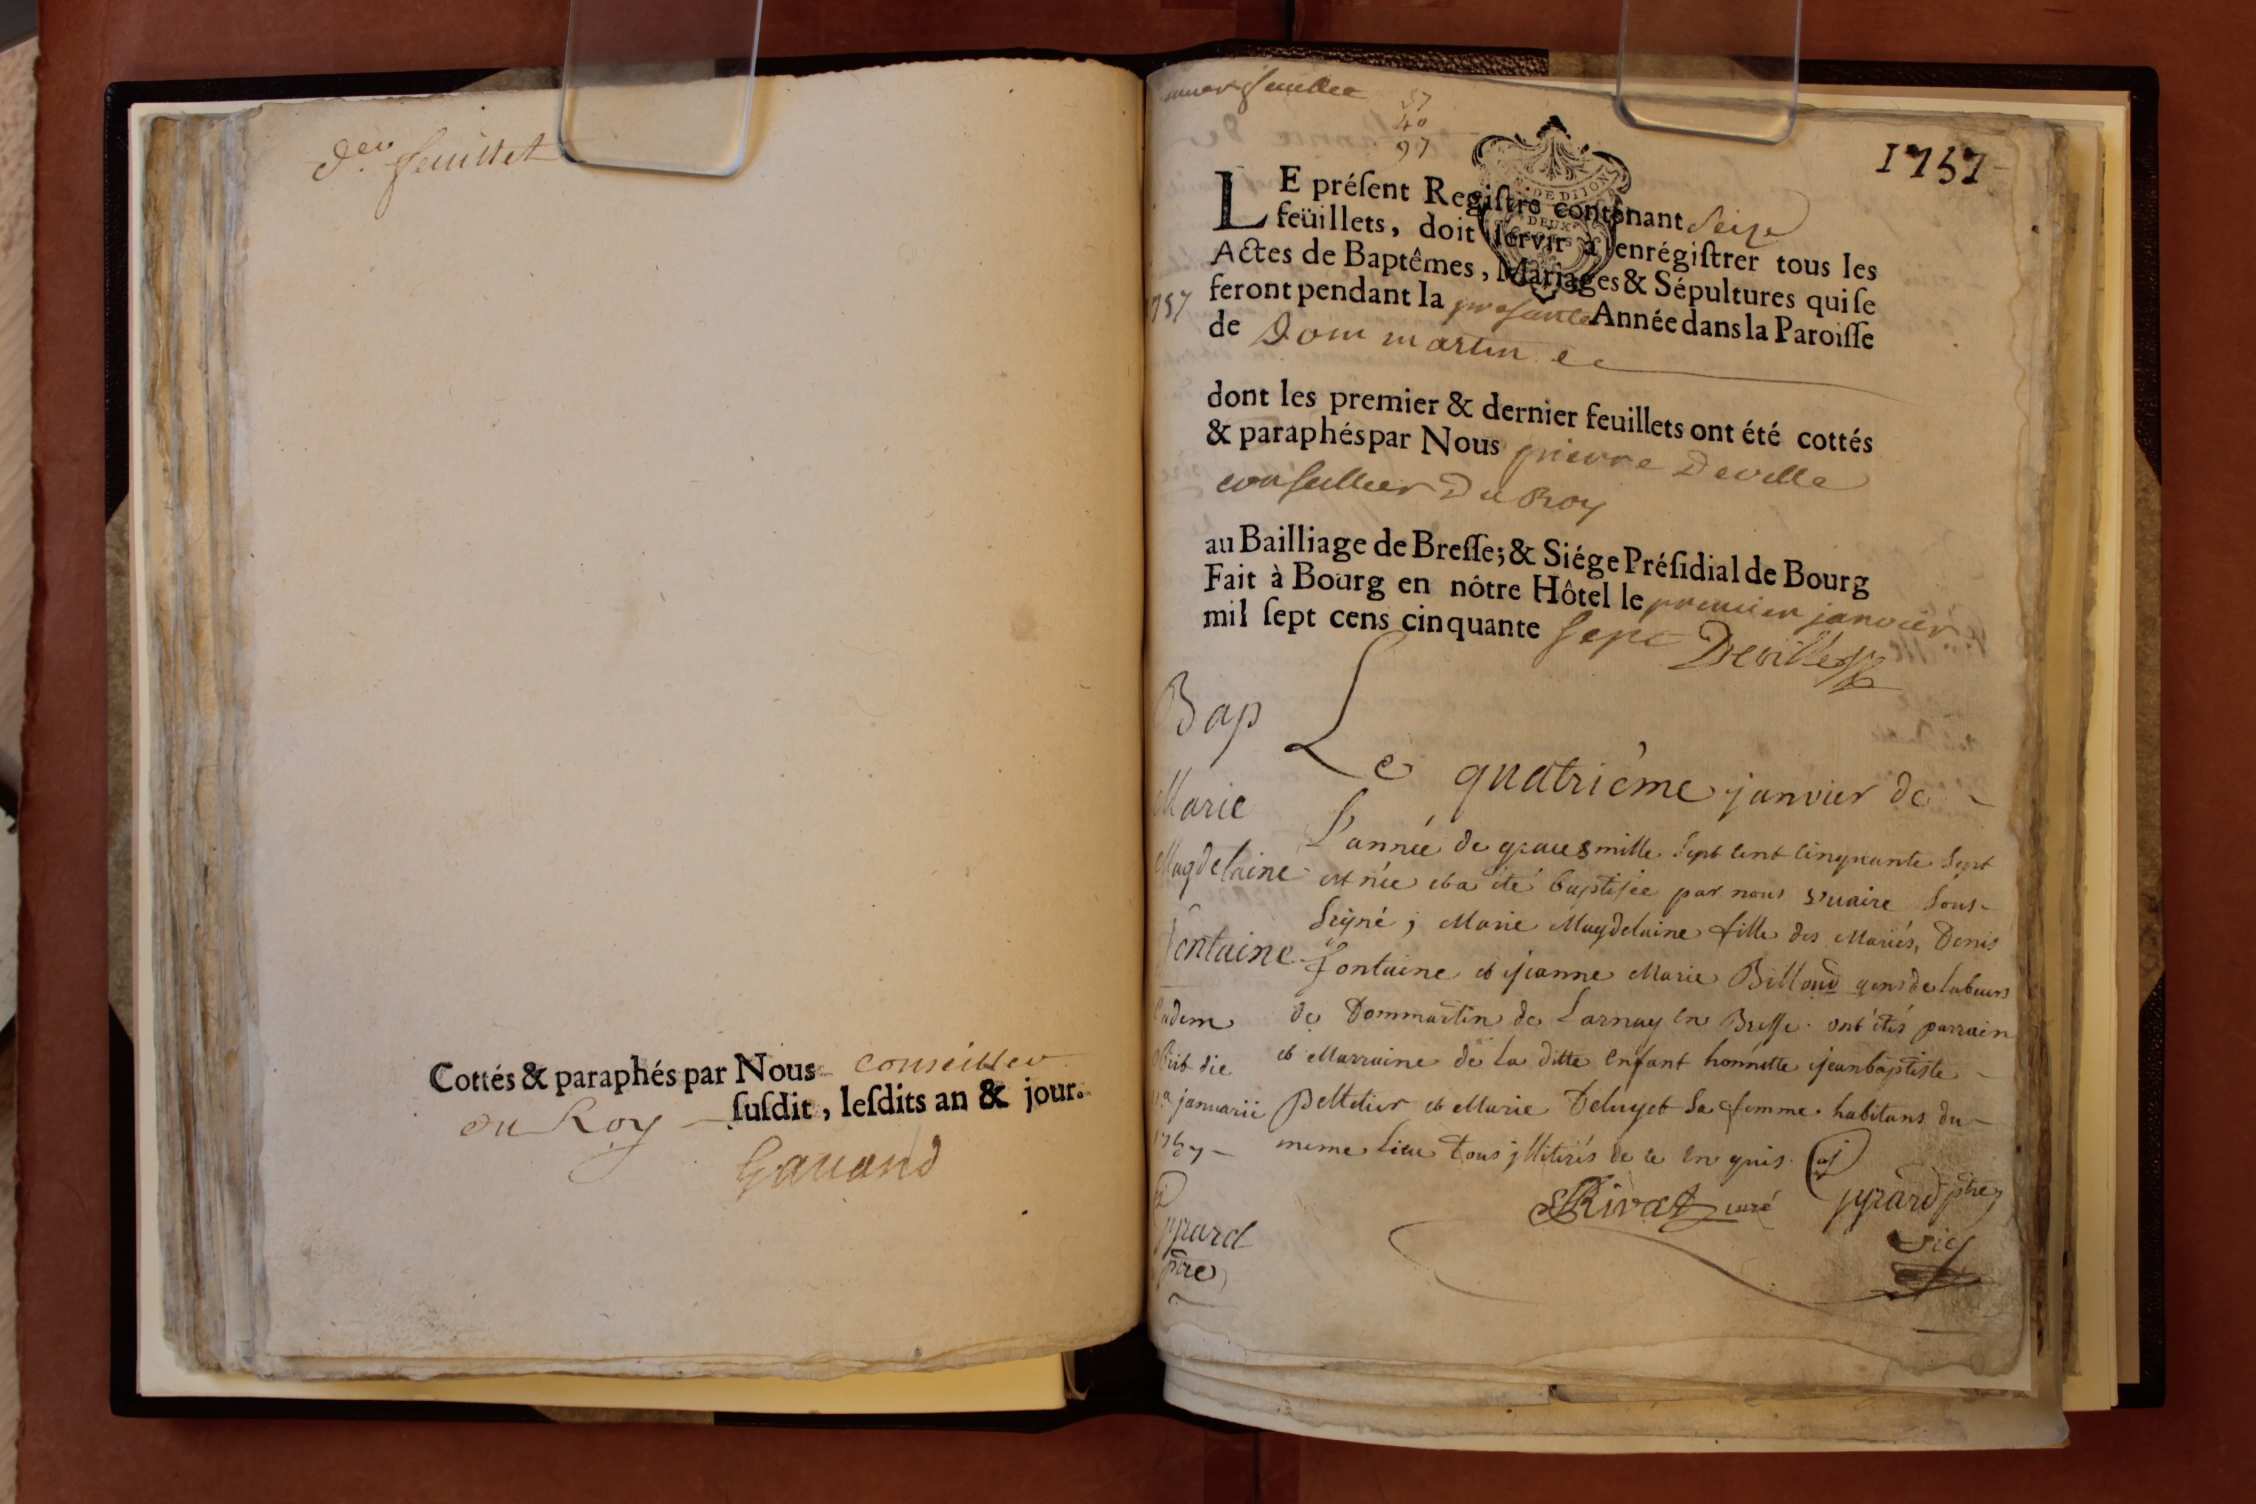 der feuillet
Cottés & paraphés par Nous conseiller
du Roy susdit, lesdits an & jour.
Gauand
feuillet
57
40
97
1757
LE présent Registre contenant Seize
feüillets, doit servir à enrégistrer tous les
Actes de Baptêmes, Mariages & Sépultures qui se
feront pendant la presente Année dans la Paroisse
de Dommartin
1757
dont les premier & dernier feuillets ont été cottés
& paraphés par Nous pierre Deville
conseiller Du Roy
au Bailliage de Bresse; & Siége Présidial de Bourg
Fait à Bourg en nôtre Hôtel le premier janvier
mil sept cens cinquante sept Deville
Bap
Marie
Magdelaine
fontaine
Eadem
obiit die
januarii
1757
gyrard
ptre
Le quatriéme janvier de
L'année de grace mille sept cent cinquante sept
est née et a été baptisée par nous vicaire sous-
signé; Marie Magdelaine fille des Mariés, Denis
fontaine et jeanne Marie Billoud gens de labeurs
de Dommartin de Larnay en Bresse. ont étés parrain
et Marraine de la ditte enfant honnette jeanbaptiste
pelletier et Marie Deluyet sa femme habitans du
meme lieu tous illiterés de ce enquis.
Rivat curé gyrard ptre
vic